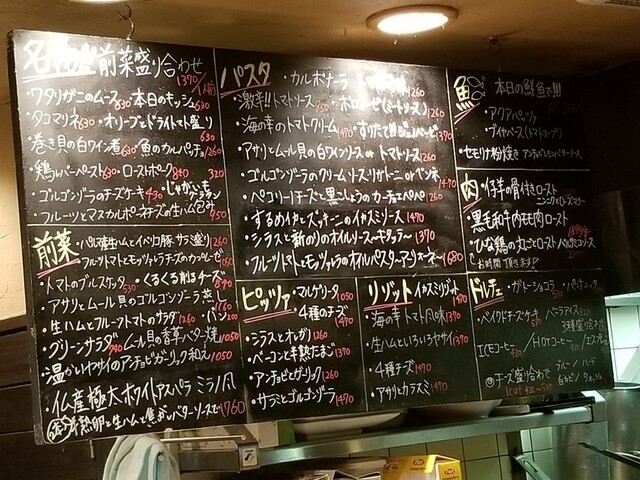 前菜盛り合わせ 1370/1人前
・ワタリガニのムース 830 本日のキッシュ 630
・タコマリネ 630 ・オリーブとドライトマト盛り 630
・巻き貝の白ワイン煮 630 ・魚のカルパッチョ 1260
・鶏レバーペースト 630 ・ローストポーク 840
・ゴルゴンゾーラのチーズケーキ 430
・フルーツとマスカルポーネチーズの生ハム包み 950
前菜
・パルマ産生ハムとイベリコ豚サラミ盛り 1260
・フルーツトマトとモッツァレラチーズのカプレーゼ
・トマトのブルスケッタ 530 ・くるくる削るチーズ 840
・アサリとムール貝のゴルゴンゾーラ蒸し
・生ハムとフルーツトマトのサラダ 1260
・グリーンサラダ 740 ・ムール貝の香草バター焼 1050
・温ヤサイのアンチョビガーリック和え 1050
・仏産極太ホワイトアスパラ ミラノ風
半熟卵と生ハムと焦がしバターソースで 1760
パスタ
・カルボナーラ 1260
・激辛!!トマトソース 950 ・ボロネーゼ(ミートソース) 1260
・海の幸のトマトクリーム 1470
・アサリとムール貝の白ワインソース or トマトソース 1260
・ゴルゴンゾーラのクリームソース リガトーニ or ペンネ 1470
・ペコリーノチーズと黒こしょうのカーチョエペペ 1260
・するめイカとズッキーニのイカスミソース 1470
・シラスと新のりのオイルソース〜キタッラ〜 1370
・フルーツトマトとモッツァレラのオイルパスタ 1680
ピッツァ
・マルゲリータ 1050
・4種のチーズ 1470
・シラスとオレガノ 1260
・ベーコンと半熟たまご 1370
・アンチョビとガーリック 1260
・サラミとゴルゴンゾーラ 1470
リゾット
・イカスミリゾット 1470
・海の幸トマト風味 1370
・生ハムといろいろヤサイ 1370
・4種チーズ 1470
・アサリとカラスミ 1470
魚
本日の鮮魚で!!!
・アクアパッツァ
・セモリナ粉焼き アンチョビレモンバターソース
肉
・仔羊の骨付きロースト
・黒毛和牛内モモ肉ロースト
・ひな鶏の丸ごとロースト バルサミコソース
お時間頂きます!
ドルチェ
・ガトーショコラ ・パンナコッタ
・ベイクドチーズケーキ バニラアイス
ICEコーヒー HOTコーヒー
チーズ盛り合わせ
ブルー ハード